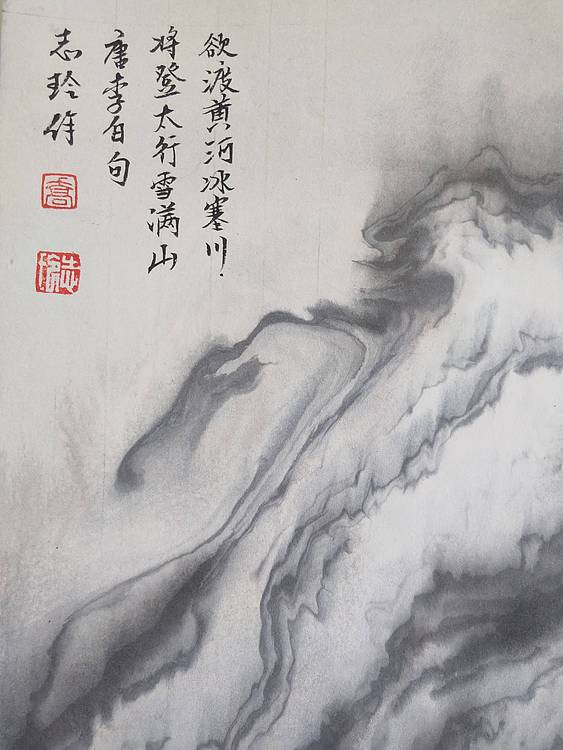 欲渡黄河冰塞川
将登太行雪满山
唐李白句
志玲作